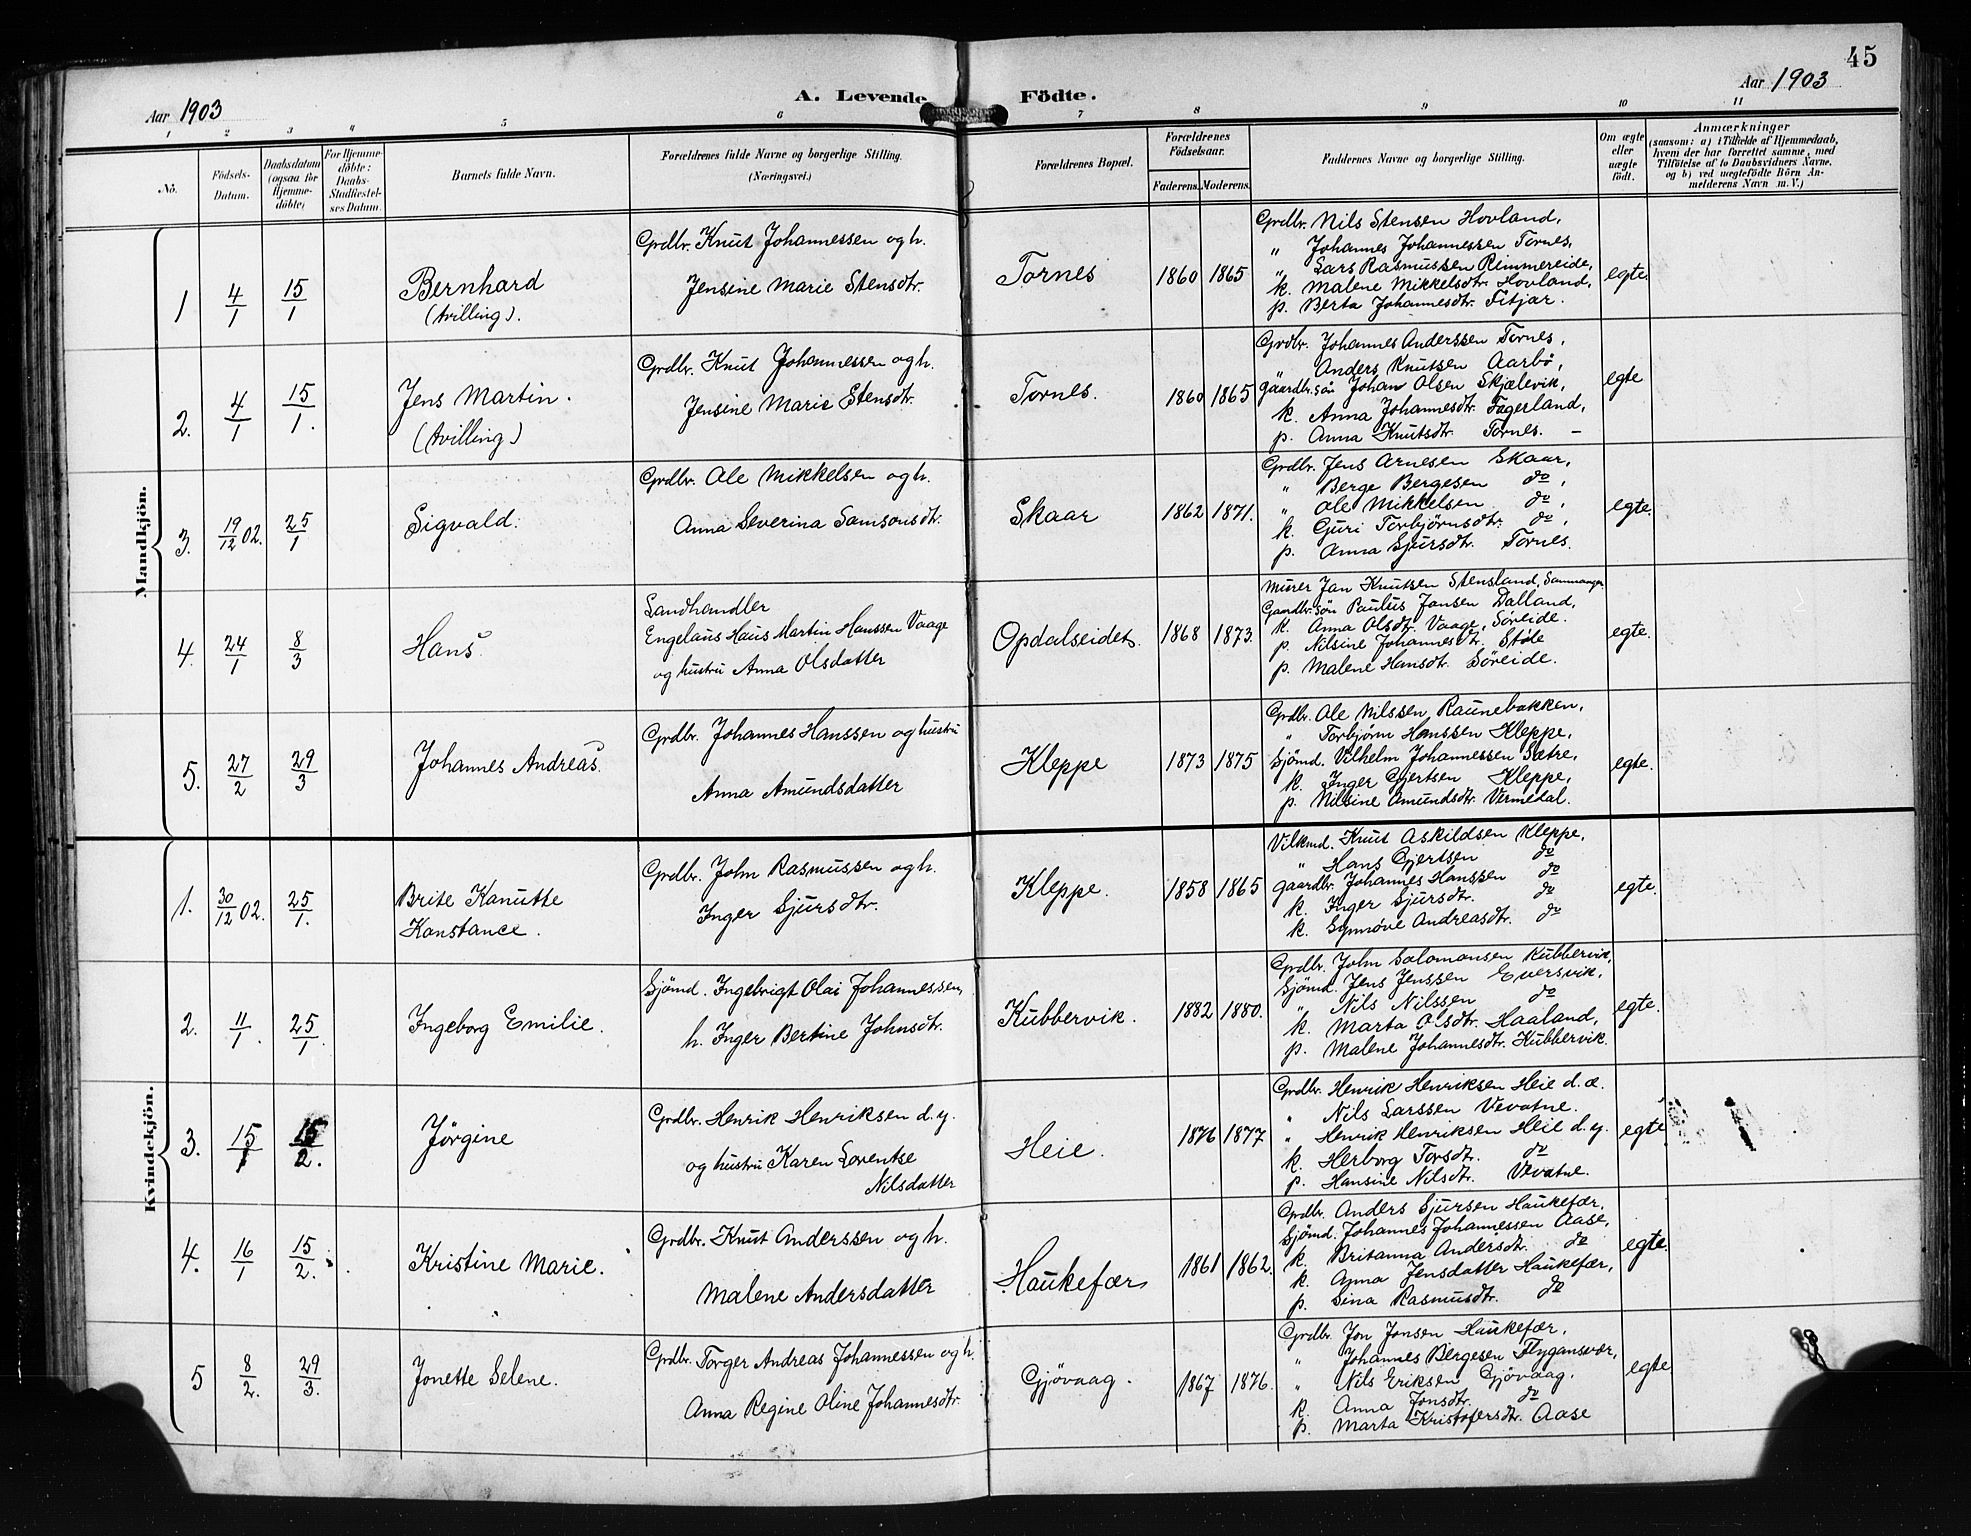 45
Aar 1903
A. Levende
Födte.
Aar 1903
1 2 3 4 5 6 7 8 9 10 11
No.
Födsels-
Datum.
Daabsdatum
(ogsaa for
Hjemme-
döbte)
For Hjemme-
döbte:
Daabs-
Stadfæstel-
ses Datum.
Barnets fulde Navn.
Forældrenes fulde Navne og borgerlige Stilling.
(Næringsvei.)
Forældrenes Bopæl.
Forældrenes
Födselsaar.
Faderens. Moderens.
Faddernes Navne og borgerlig Stilling.
Om ægte
eller
uægte
födt.
Anmærkninger
(saasom: a) i Tilfælde af Hjemmedaab,
hvem der har forrettet samme, med
Tilföielse af to Daabsvidners Navne,
og b) ved uægtefödte Börn An-
melderens Navn m. V.)
Mandkjön.
1 4/1 15/1
Bernhard
(tvilling).
Grdbr. Knut Johannessen og h.
Jensine Marie Stensdtr.
Tornes
1860 1865
Grdbr. Nils Stensen Hovland,
" Johannes Johannessen Tornes,
" Lars Rasmussen Rimmereide,
k. Malene Mikkelsdtr. Hovland,
p. Berta Johannesdtr. Fitjar.
egte.
2. 4/1 15/1.
Jens Martin.
(tvilling)
Grdbr. Knut Johannessen og h.
Jensine Marie Stensdtr.
Tornes.
1860 1865
Grdbr. Johannes Anderssen Tornes,
Anders Knutsen Aarbö,
Gaardbr.sön Johan Olsen Skjælevik,
k. Anna Johannesdtr. Fagerland,
p. Anna Knutsdtr. Tornes. –
egte
3. 19/12 02. 25/1
Sigvald.
Grdbr. Ole Mikkelsen og h.
Anna Severina Samsonsdtr.
Skaar
1862 1871.
Grdbr. Jens Arnesen Skaar,
" Berge Bergesen do,
" Ole Mikkelsen do,
k. Guri Torbjørnsdtr. do,
p. Anna Sjursdtr. Tornes.
egte.
4. 24/1 8/3
Hans.
Landhandler
Engelaus Haus Martin Hanssen Vaage
og hustru Anna Olsdatter
Opdalseidet.
1868 1873.
Murer Jan Knutsen Stensland, Sammanger
Gaardbr.sön Paulus Jansen Dalland,
k. Anna Olsdtr. Vaage, Søreide.
p. Nilsine Johannesdtr. Støle
p. Malene Hansdtr. Søreide.
egte.
5. 27/2 29/3
Johannes Andreas.
Grdbr. Johannes Hanssen og hustru
Anna Amundsdatter
Kleppe
1873 1875
Grdbr. Ole Nilssen Raunebakken,
" Torbjørn Hanssen Kleppe,
Sjömd. Vilhelm Johannessen Sætre,
k. Inger Gjertsen Kleppe,
p. Nilsine Amundsdtr. Vermedal.
egte.
Kvindekjön.
1. 30/12 02. 25/1.
Brite Kanutte
Konstance.
Grdbr. John Rasmussen og h.
Inger Sjursdtr.
Kleppe.
1858 1865
Vilkmd. Knut Askildsen Kleppe,
" Hans Gjertsen do
Gaardbr. Johannes Hanssen do
k. Inger Sjursdtr. do
k. Synnøve Andreasdtr. do
egte.
2. 11/1. 25/1.
Ingeborg Emilie.
Sjömd. Ingebrigt Olai Johannessen,
h. Inger Bertine Johnsdtr.
Kubbervik.
1882 1880.
Grdbr. John Salomonsen Kubbervik,
Sjömd. Jens Jenssen Eversvik,
" Nils Nilssen do
k. Marta Olsdtr. Haaland,
p. Malene Johannesdtr. Kubbervik.
egte.
3. 15/1 15/2.
Jörgine
Grdbr. Henrik Henriksen d.y.
og hustru Karen Lorentse
Nilsdatter
Heie.
1876 1877
Grdbr. Henrik Henriksen Heie d.æ.
" Nils Larssen Vevatne.
" Henrik Henriksen Heie d.y.
k. Herborg Torsdtr. do
p. Hansine Nilsdtr. Vevatne.
egte
4. 16/1 15/2.
Kristine Marie.
Grdbr. Knut Anderssen og h.
Malene Andersdatter
Haukefær
1861 1862.
Grdbr. Anders Sjursen Haukefær,
Sjömd. Johannes Johannessen Aase,
k. Britanna Andersdtr. do
k. Anna Jensdatter Haukefær,
p. Sina Rasmusdtr. do
egte.
5 8/2. 29/3.
Jonette Selene.
Grdbr. Torger Andreas Johannessen og h.
Anna Regine Oline Johannesdtr.
Gjøvaag.
1867 1876.
Grdbr. Jon Jonsen Haukefær,
" Johannes Bergesen Flygansvær,
" Nils Eriksen Gjøvaag,
k. Anna Jonsdtr. do
p. Marta Kristofersdtr. Aase
egte